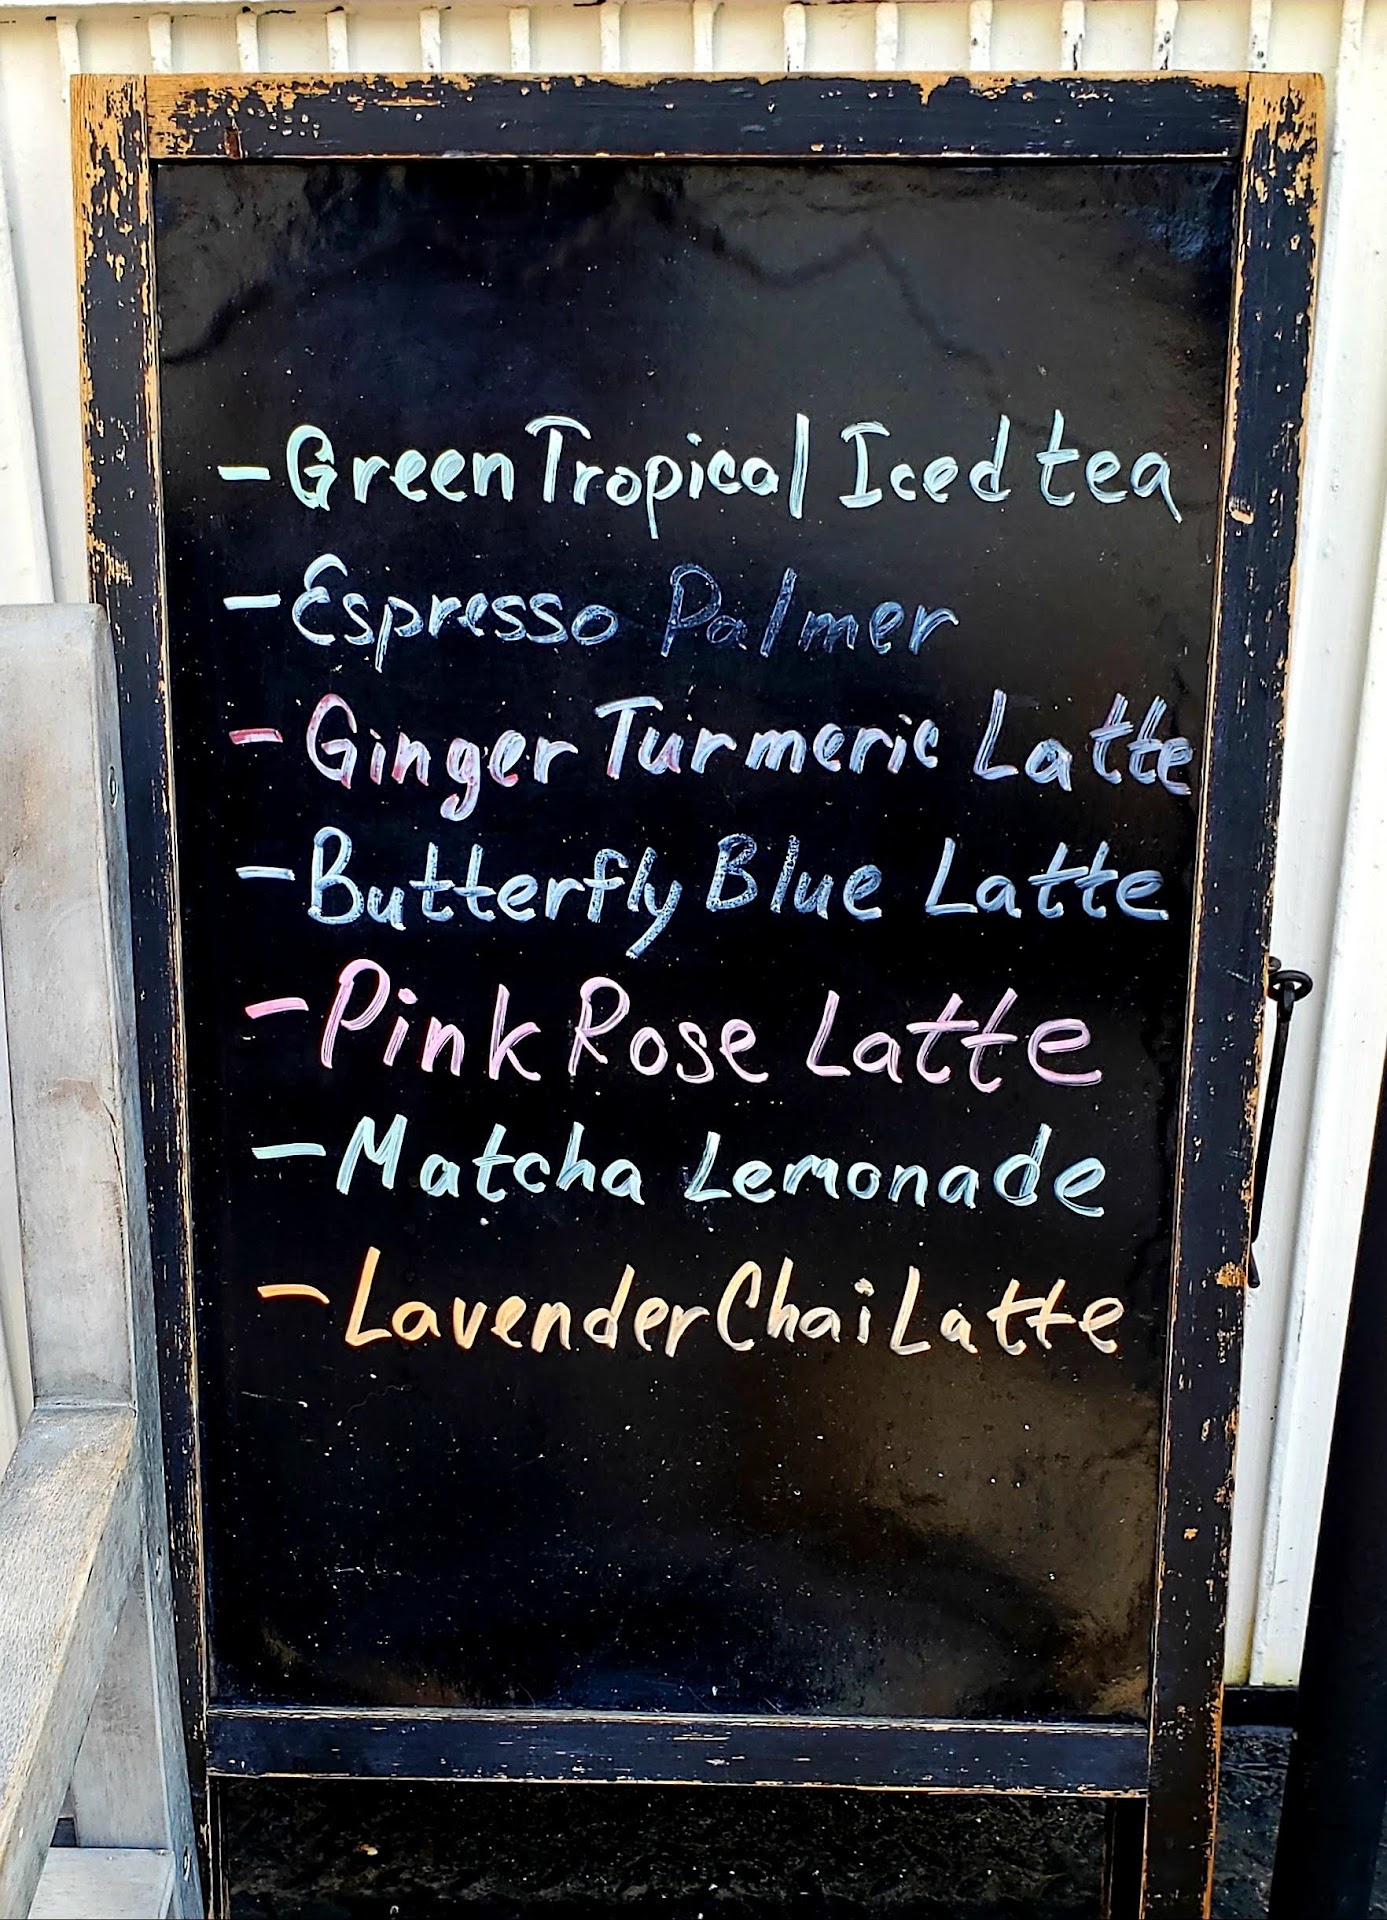 - Green Tropical Iced tea
- Espresso Palmer
- Ginger Turmeric Latte
- Butterfly Blue Latte
- Pink Rose Latte
- Matcha Lemonade
- Lavender Chai Latte